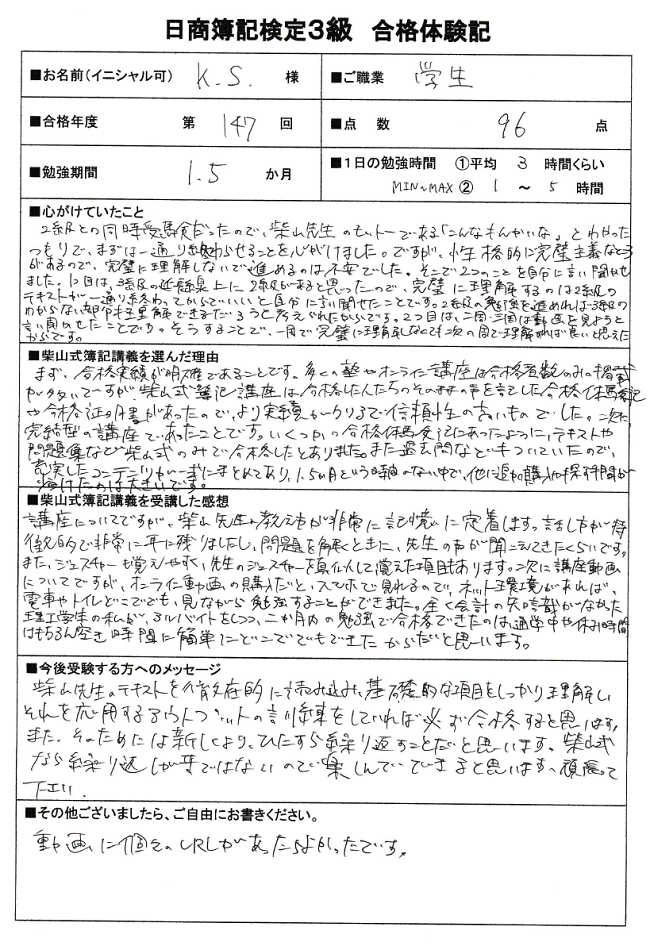 日商簿記検定３級 合格体験記
■お名前(イニシャル可) K.S. 様 ■ご職業 学生
■合格年度 第 147 回 ■点 数 96 点
■勉強期間 1.5 か月 ■１日の勉強時間 ①平均 3 時間くらい
MIN～MAX ② 1 ～ 5 時間
■心がけていたこと
2級との同時受験だったので、柴山先生のモットーである「こんなもんかいな」とわかった
つもりで、まずは一通り終わらせることを心がけました。ですが、性格的に完璧主義なところ
があるので、完璧に理解しないで進めるのは不安でした。そこで2つのことを自分に言い聞かせ
ました。1つ目は、3級の延長線上に2級があると思ったので、完璧に理解するのは2級の
テキストが一通り終わってからでいいと自分に言い聞かせたことです。2級の勉強を進めれば3級の
わからない部分も理解できるだろうと考えられたからです。2つ目は、二周、三周は動画を見ようと
言い聞かせたことです。そうすることで、一周で完璧に理解しなくても次の周で理解すれば良いと思えた
からです。
■柴山式簿記講義を選んだ理由
まず、合格実績が明確であることです。多くの塾やオンライン講座は合格者数のみの掲載
が多いですが、柴山式簿記講座は合格した人たちのそのままの声を記した合格体験記
や合格証明書があったので、より実績がわかりるで信頼性の高いものでした。次に、
完結型の講座であったことです。いくつかの合格体験記にあったように、テキストや
問題集など柴山式のみで合格したとありました。また過去問などもついていたので、
充実したコンテンツが一式にまとめてあり、1.5か月という時間のない中で、他に追加購入や探す手間が
省けたのは大きいです。
■柴山式簿記講義を受講した感想
講座についてですが、柴山先生の教え方が非常に記憶に定着します。話し方が特
徴的で非常に耳に残りましたし、問題を解くときに、先生の声が聞こえてきたくらいです。
また、ジェスチャーも覚えやすく、先生のジェスチャーを真似して覚えた項目あります。次に講座動画
についてですが、オンライン動画の購入だと、スマホで見れるので、ネット環境があれば、
電車やトイレどこででも、見ながら勉強することができました。全く会計の知識がなかった
理工学生の私が、アルバイトをしつつ、二か月内の勉強で合格できたのは、通学中や休み時間
はもちろん空き時間に簡単にどこででもできたからだと思います。
■今後受験する方へのメッセージ
柴山先生のテキストを徹底的に読み込み、基礎的な項目をしっかり理解し
それを応用するアウトプットの訓練をしていれば必ず合格すると思います。
また、そのためには新しくより、ひたすら繰り返すことだと思います。柴山式
なら繰り返しが苦ではないので楽しんでいできると思います。頑張って
下さい。
■その他ございましたら、ご自由にお書きください。
動画に個々のURLがあったらよかったです。